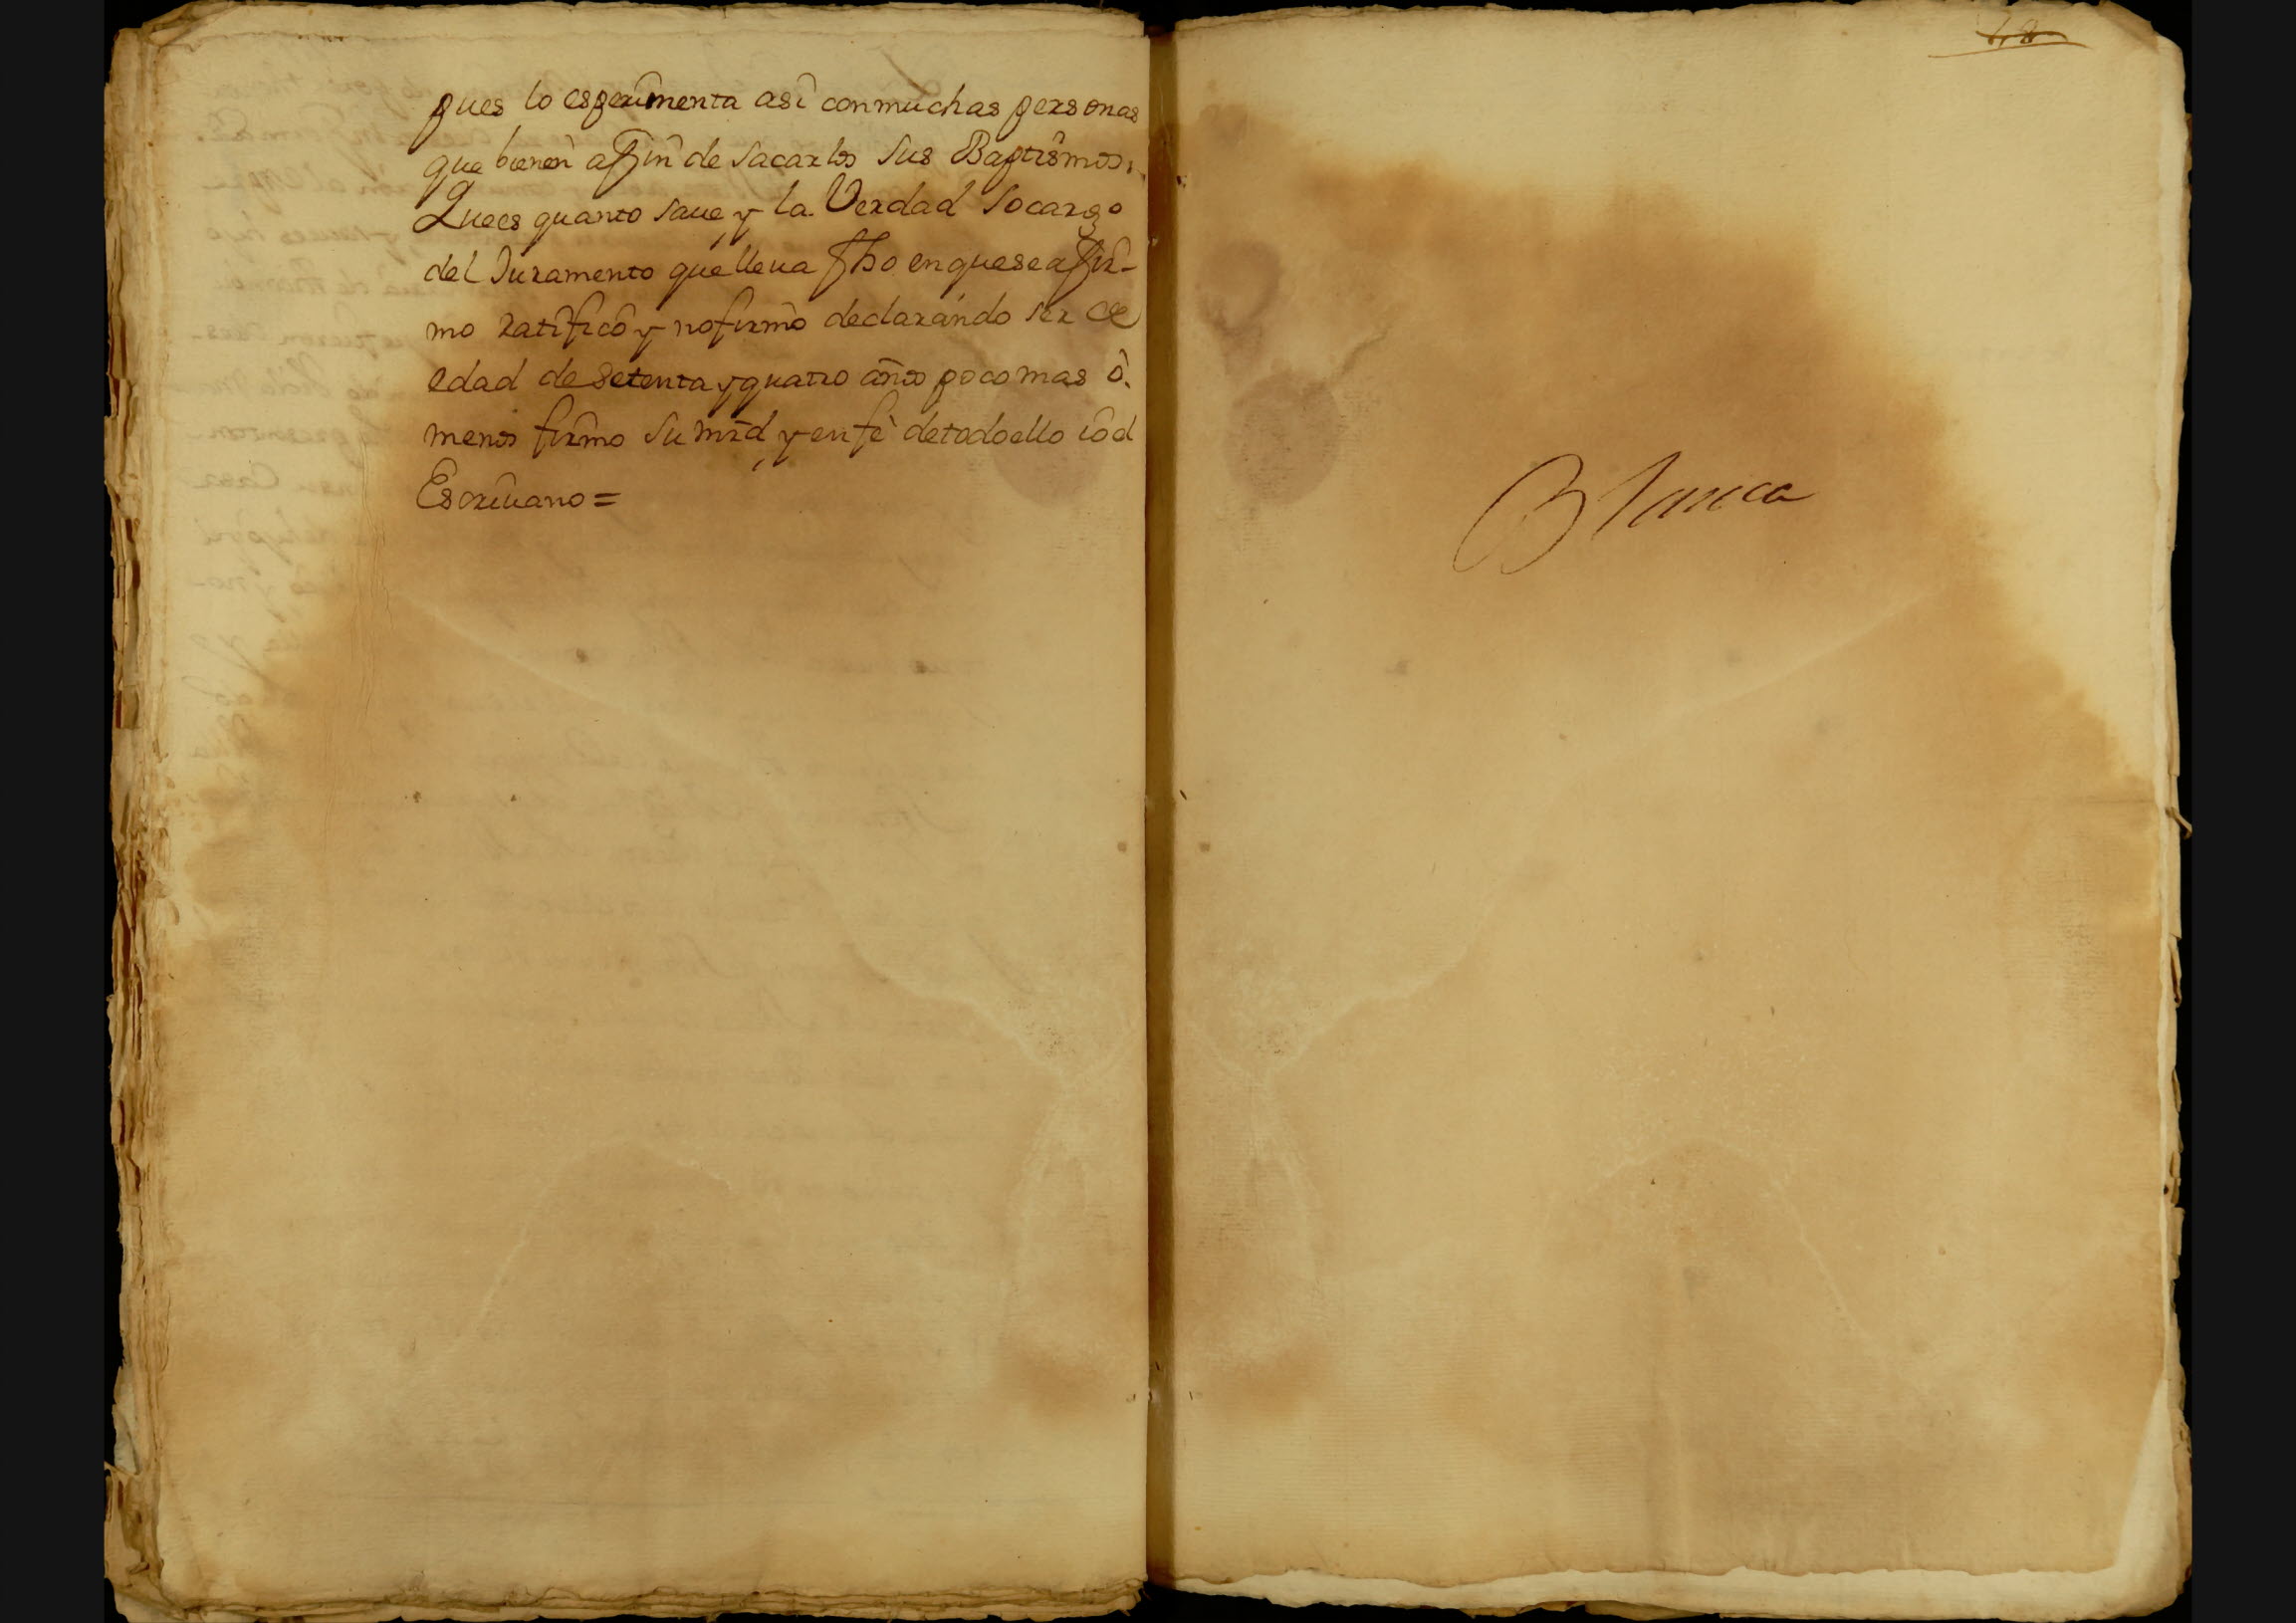 pues lo esperimenta asi con muchas personas
que bienen affin de sacarlos sus Baptismos.
Que es quanto saue, y la Verdad socargo
del Juramento que lleua fho en quese affir-
mo ratificò y no firmò declarando ser de
edad de setenta y quatro años poco mas ò.
menos firmo su mrd, y en fè de todo ello iò el
Escriuano =
Blanca